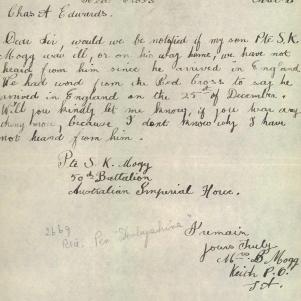 Red Cross
Chas A Edwards.
Dear Sir, would we be notified if my son Pte S. K.
Mogg were ill, or on his way home, we have not
heard from him since he arrived in England
We had word from the Red Cross to say he
arrived in England on the 25th of December.
Will you kindly let me know, if you hear any
thing more, because I dont know why I have
not heard from him.
Pte S. K. Mogg
50th Battalion
Australian Imperial Force.
I remain
Yours Truly
Mrs B Mogg
Keith P.O.
S.A.
2669
Per